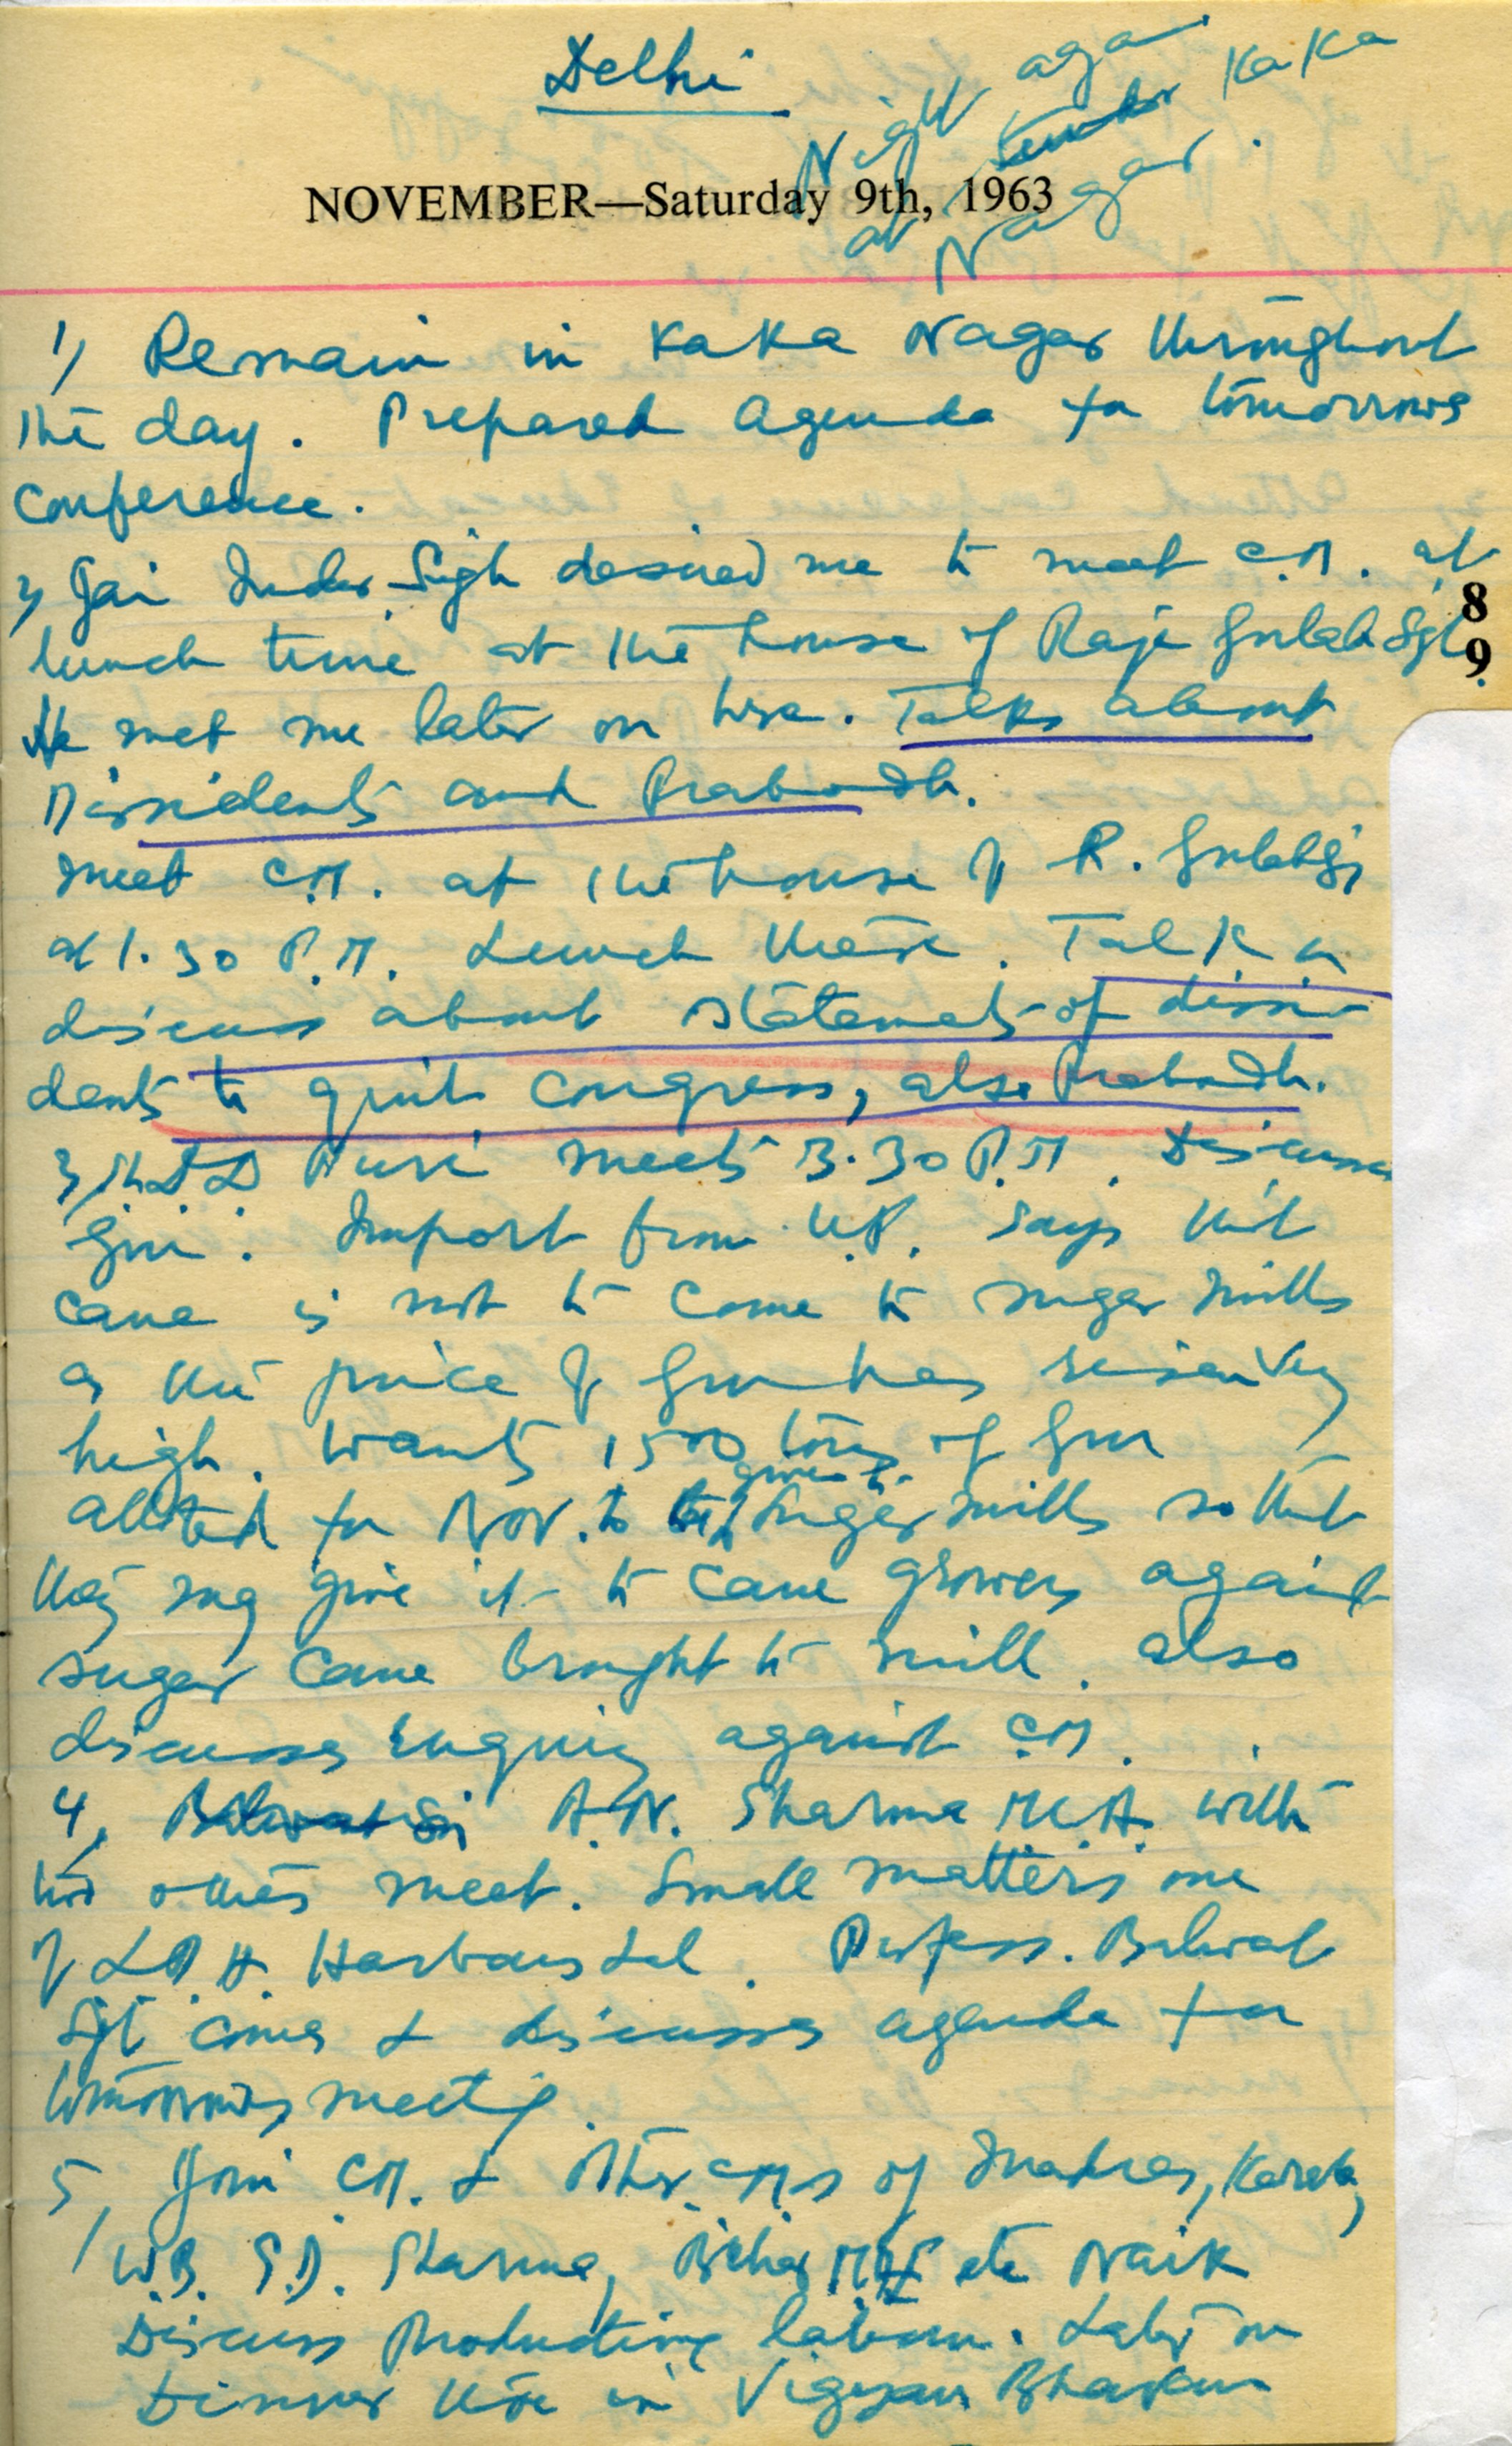 Delhi
Night again
at Kaka
Nagar.
NOVEMBER—Saturday 9th, 1963
1) Remain in Kaka Nagar throughout
the day. Prepared agenda for tomorrows
conference.
2) Jai Inder Singh desired me to meet C.M. at
8
lunch time at the house of Raja Gulab Sgh.
9
He met me later on here. Talks about
Dissidents and Prabodh.
meet C.M. at the house of R. Gulab Sj
at 1.30 P.M. Lunch there. Talk
discuss about statements of dissi-
dents to quit congress, also Prabodh.
3) D.D Puri meets 3.30 P.M. Discusses
Gur. Import from U.P. says that
cane is not to come to sugar mills
as the price of Gur has risen very
high. wants 1500 tons of Gur
alloted for Nov. to be given to Sugar mills so that
they may give it to cane growers against
sugar cane brought to mill. also
discusses enquiry against C.M.
4) A.N. Sharma M.L.A. with
two others meet. Small matters one
of Harbans Lal. Profess. Balwat
Sgh comes & discusses agenda for
tomorrows meeting.
5) Join C.M. & other C.Ms of Madras, Kerala,
W.B. S.D. Sharma, Bihar etc Naik
Discuss Productive labour. Later on
Dinner there in Vigyan Bhavan